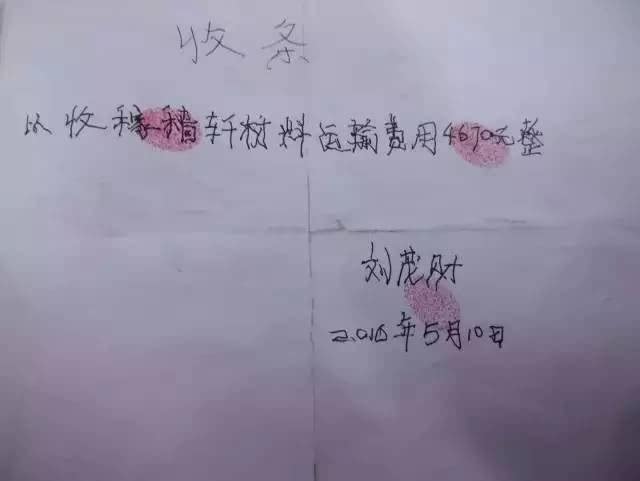 收条
以收稼穑轩材料运输费用4670元整
刘茂财
2016年5月10日